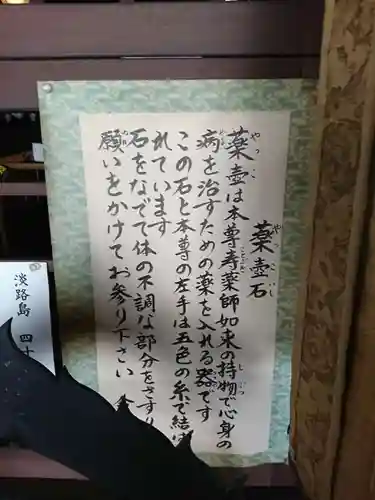 薬壺石
薬壺は本尊寿薬師如来の持物で心身の
病を治すための薬を入れる器です
この石と本尊の左手は五色の糸で結ば
れています
石をなでて体の不調な部分をさすり
願いをかけてお参り下さい
淡路島 四十